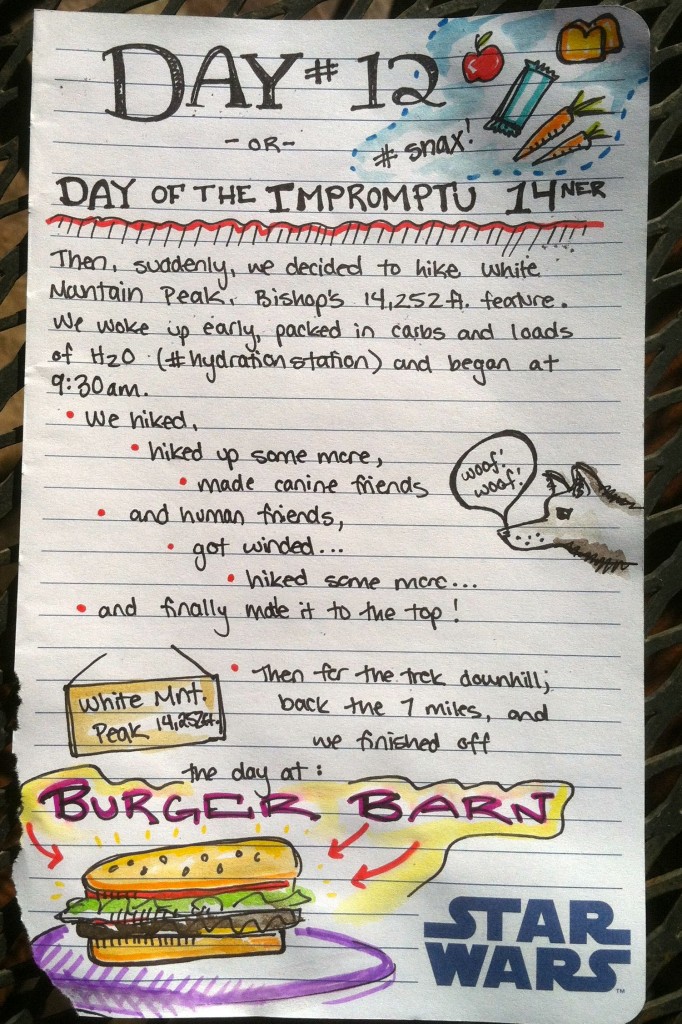 DAY # 12
- OR -
# snax!
DAY OF THE IMPROMPTU 14NER
Then, suddenly, we decided to hike White
Mantain Peak, Bishop's 14,252 ft. feature.
We woke up early, packed in carbs and loads
of H2O (#hydrationstation) and began at
9:30am.
• We hiked,
• hiked up some more,
• made canine friends
• and human friends,
• got winded...
• hiked some more...
• and finally made it to the top!
woof!
woof!
White Mnt.
Peak 14,252ft.
• Then for the trek downhill;
back the 7 miles, and
we finished off
the day at:
BURGER BARN
STAR
WARS™